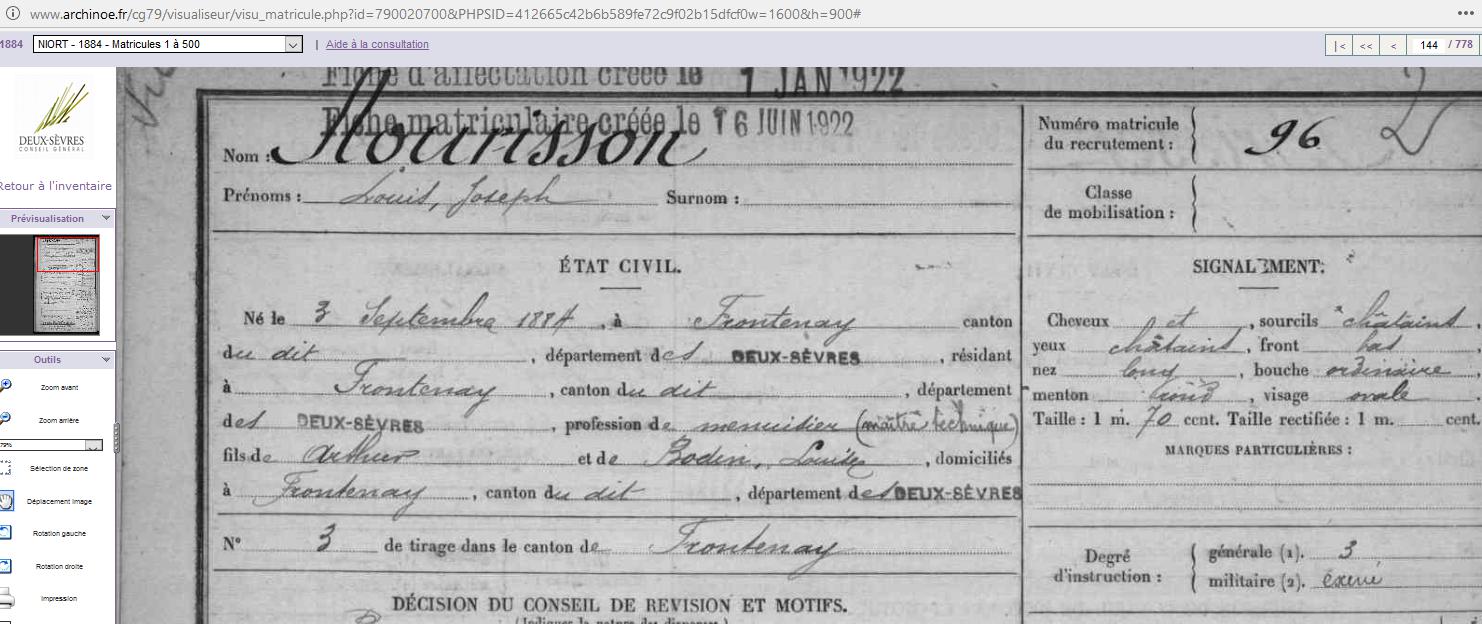 www.archinoe.fr/cg79/visualiseur/visu_matricule.php?id=790020700&PHPSID=412665c42b6b589fe72c9f02b15dfcf0w=1600&h=900#
1884 NIORT - 1884 - Matricules 1 à 500 | Aide à la consultation |< << < 144 / 778
DEUX-SÈVRES
CONSEIL GÉNÉRAL
Retour à l'inventaire
Prévisualisation
Outils
Zoom avant
Zoom arrière
79%
Sélection de zone
Déplacement image
Rotation gauche
Rotation droite
Impression
Fiche d'affectation créée le 1 JAN 1922
Fiche matriculaire créée le 16 JUIN 1922
Nom : Nourisson
Prénoms : Louis, Joseph Surnom :
ÉTAT CIVIL.
Né le 3 Septembre 1884, à Frontenay canton
du dit, département des DEUX-SÈVRES, résidant
à Frontenay, canton du dit, département
des DEUX-SÈVRES, profession de menuisier (maître technique)
fils de Arthur et de Bodin, Louise, domiciliés
à Frontenay, canton du dit, département des DEUX-SÈVRES
N° 3 de tirage dans le canton de Frontenay
DÉCISION DU CONSEIL DE REVISION ET MOTIFS.
(Indiquer la nature des dispenses.)
Numéro matricule
du recrutement : 96
Classe
de mobilisation :
SIGNALEMENT:
Cheveux et, sourcils châtains,
yeux châtains, front bas
nez long, bouche ordinaire,
menton rond, visage ovale.
Taille : 1 m. 70 cent. Taille rectifiée : 1 m. cent.
MARQUES PARTICULIÈRES :
Degré
d'instruction :
générale (1). 3
militaire (2). exercé